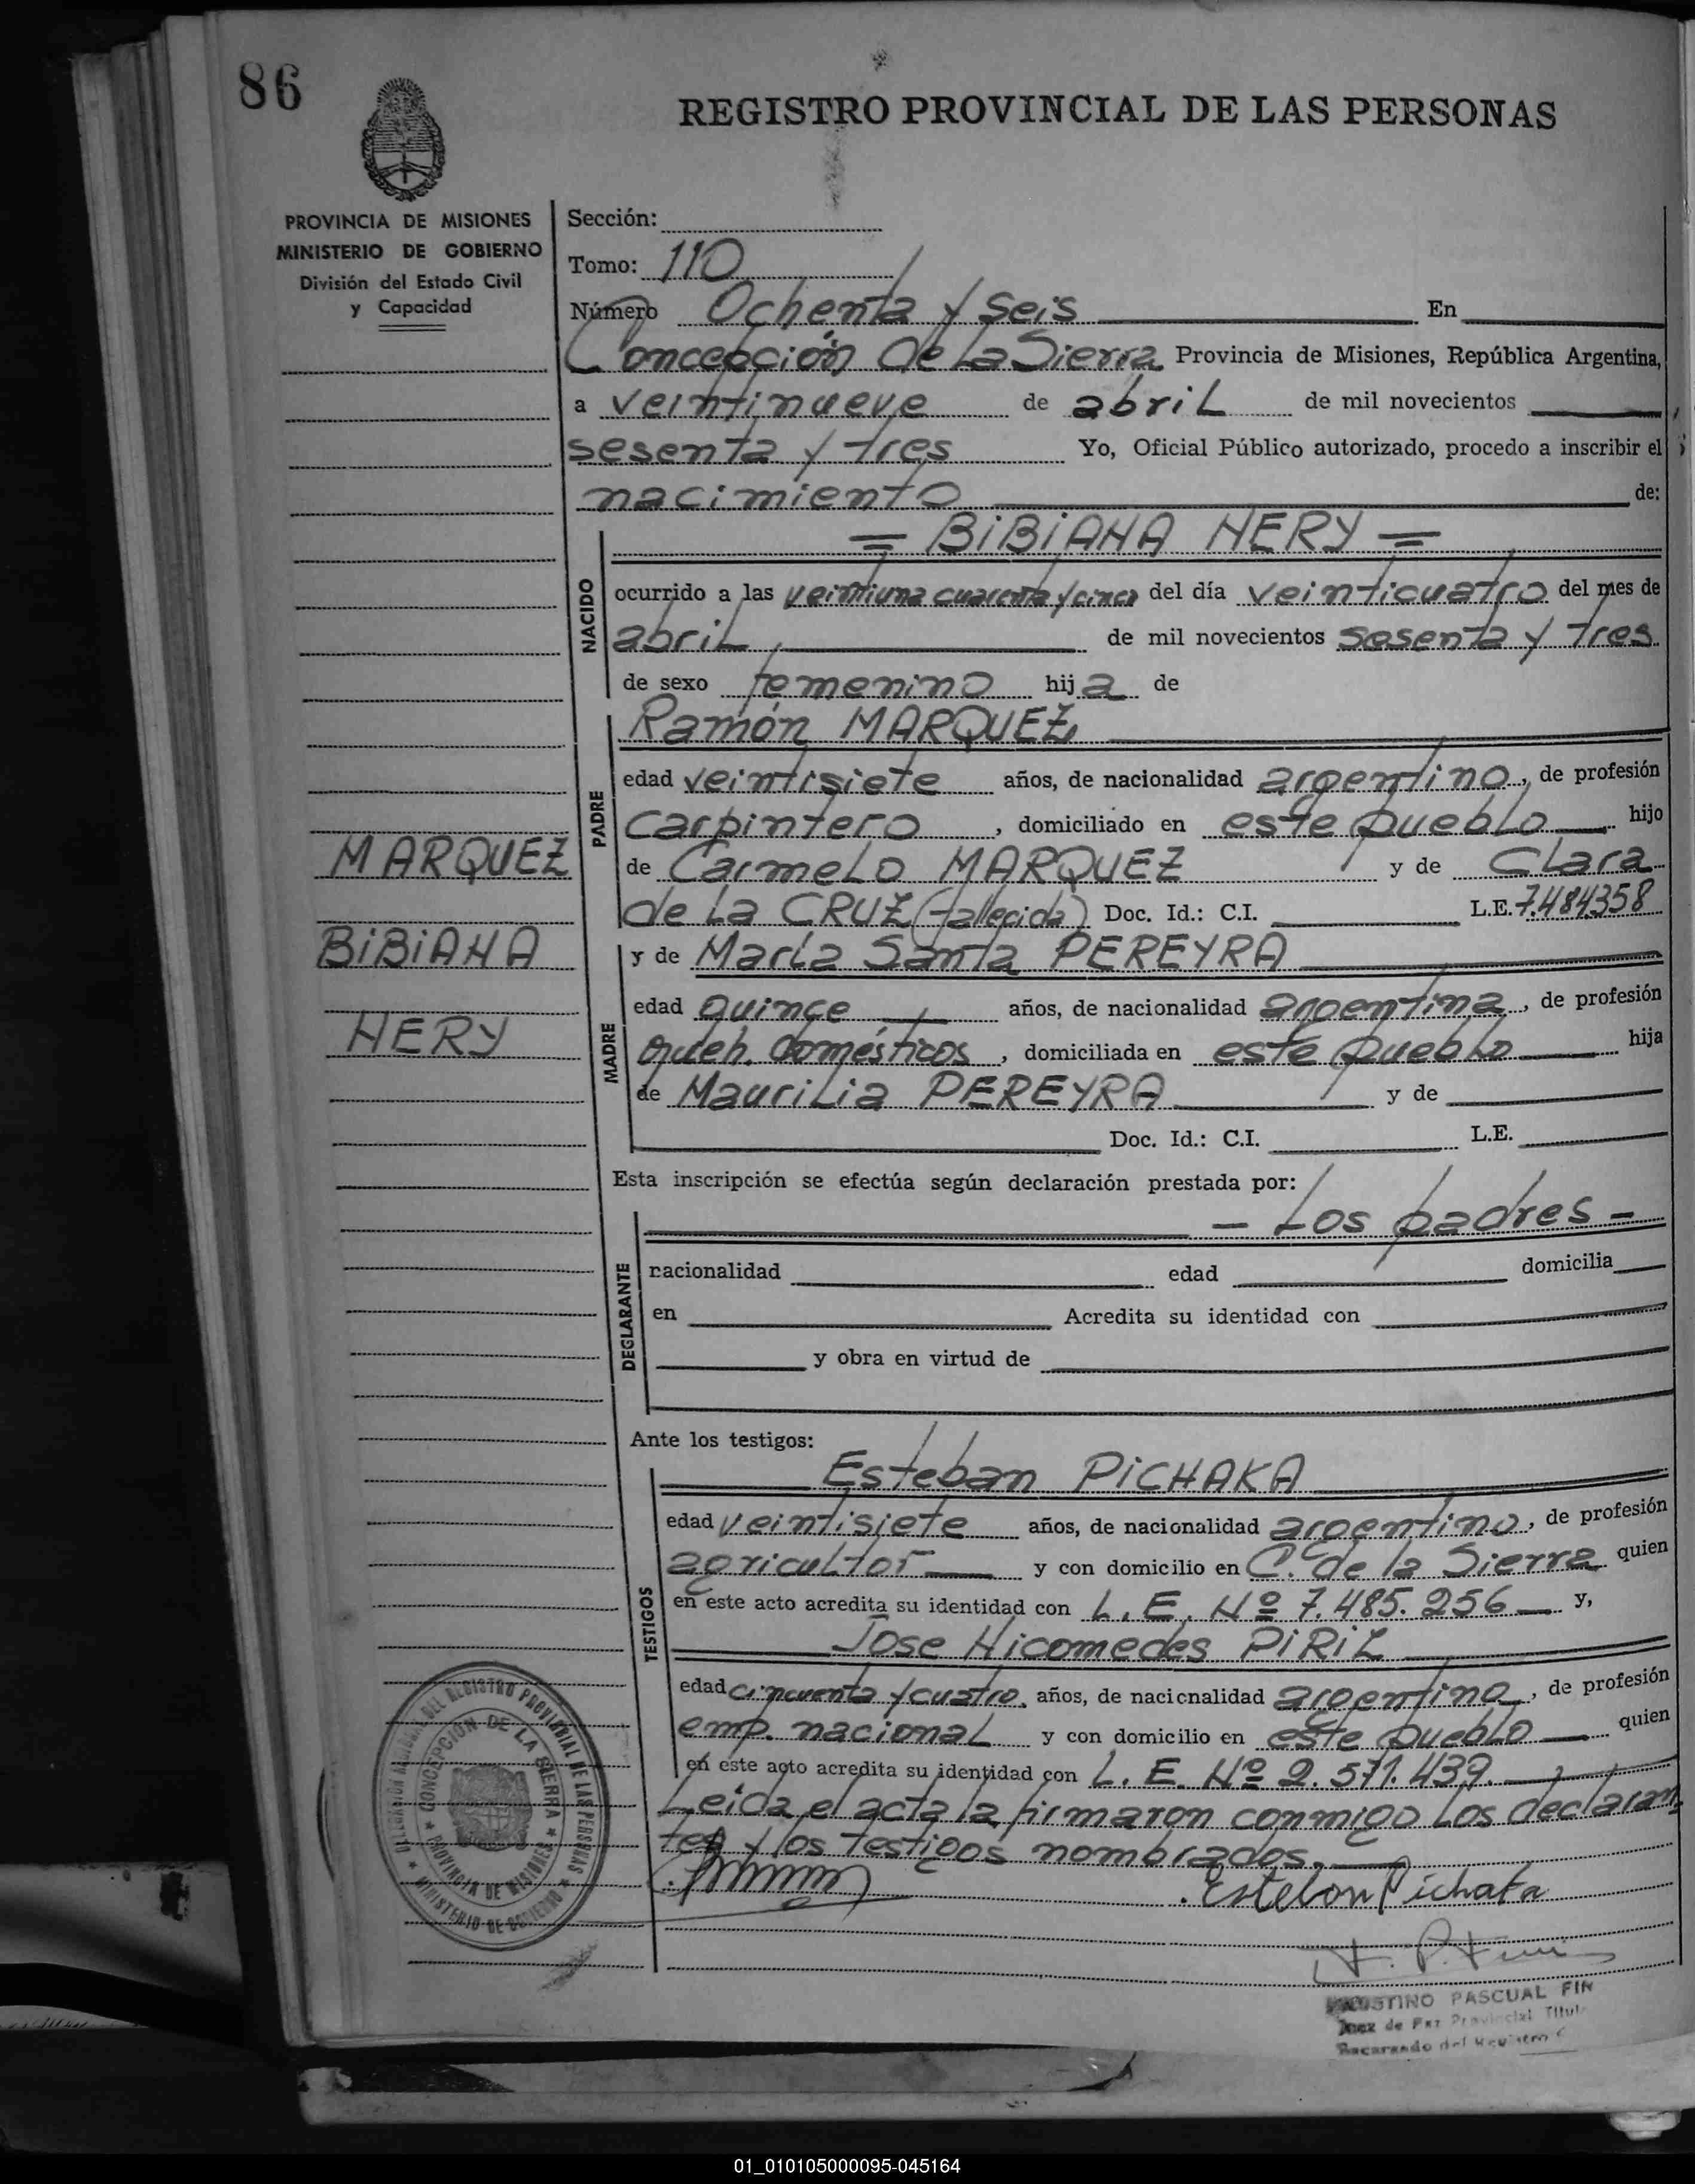 86
REGISTRO PROVINCIAL DE LAS PERSONAS
PROVINCIA DE MISIONES
MINISTERIO DE GOBIERNO
División del Estado Civil
y Capacidad
Sección:
Tomo: 110
Número Ochenta y seis En
Concepción de la Sierra Provincia de Misiones, República Argentina,
a veintinueve de abril de mil novecientos
sesenta y tres Yo, Oficial Público autorizado, procedo a inscribir el
nacimiento de:
= BIBIANA NERY =
NACIDO
ocurrido a las veintiuna cuarenta y cinco del día veinticuatro del mes de
abril de mil novecientos sesenta y tres
de sexo femenino hija de
PADRE
Ramón MARQUEZ
edad veintisiete años, de nacionalidad argentino, de profesión
carpintero, domiciliado en este pueblo hijo
de Carmelo MARQUEZ y de Clara
de la CRUZ (fallecida) Doc. Id.: C.I. L.E. 7.484.358
MARQUEZ
BIBIANA
NERY
MADRE
y de María Santa PEREYRA
edad quince años, de nacionalidad argentina, de profesión
queh. domésticos, domiciliada en este pueblo hija
de Maurilia PEREYRA y de
Doc. Id.: C.I. L.E.
Esta inscripción se efectúa según declaración prestada por:
DECLARANTE
- Los padres -
nacionalidad edad domicilia
en Acredita su identidad con
y obra en virtud de
Ante los testigos:
TESTIGOS
Esteban PICHAKA
edad veintisiete años, de nacionalidad argentino, de profesión
agricultor y con domicilio en C. de la Sierra quien
en este acto acredita su identidad con L. E. Nº 7.485.256 y,
Jose Nicomedes PIRIZ
edad cincuenta y cuatro, años, de nacionalidad argentino, de profesión
emp. nacional y con domicilio en este pueblo quien
en este acto acredita su identidad con L. E. Nº 2.571.439.
Leida el acta la firmaron conmigo los declaran
tes y los testigos nombrados.
Esteban Pichaka
PASCUAL
Juez de Paz Provincial
CONCEPCION DE LA SIERRA
PROVINCIA DE MISIONES
DEL REGISTRO PROVINCIAL DE LAS PERSONAS
MINISTERIO DE GOBIERNO
01_010105000095-045164